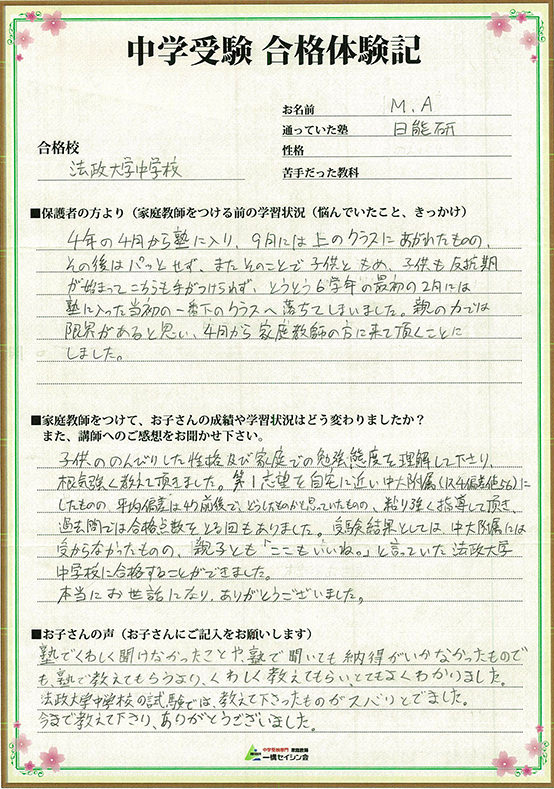 中学受験 合格体験記
お名前 M.A
通っていた塾 日能研
性格
苦手だった教科
合格校
法政大学中学校
■保護者の方より（家庭教師をつける前の学習状況（悩んでいたこと、きっかけ）
4年の4月から塾に入り、9月には上のクラスにあがれたものの、
その後はパッとせず、またそのことで子供ともめ、子供も反抗期
が始まってこちらも手がつけられず、とうとう6学年の最初の2月には
塾に入った当初の一番下のクラスへ落ちてしまいました。親の力では
限界があると思い、4月から家庭教師の方に来て頂くことに
しました。
■家庭教師をつけて、お子さんの成績や学習状況はどう変わりましたか？
また、講師へのご感想をお聞かせ下さい。
子供ののんびりした性格及び家庭での勉強態度を理解して下さり、
根気強く教えて頂きました。第1志望を自宅に近い中大附属(R4偏差値56)に
したものの、平均偏差は49前後で、どうしたものかと思っていたものの、粘り強く指導して頂き、
過去問では合格点数をとる回もありました。受験結果としては、中大附属には
受からなかったものの、親子とも「ここもいいね。」と言っていた法政大学
中学校に合格することができました。
本当にお世話になり、ありがとうございました。
■お子さんの声（お子さんにご記入をお願いします）
塾でくわしく聞けなかったことや、塾で聞いても納得がいかなかったもので
も、塾で教えてもらうより、くわしく教えてもらいとてもよくわかりました。
法政大学中学校の試験では、教えて下さったものがズバリとでました。
今まで教えて下さり、ありがとうございました。
中学受験専門 家庭教師
一橋セイシン会